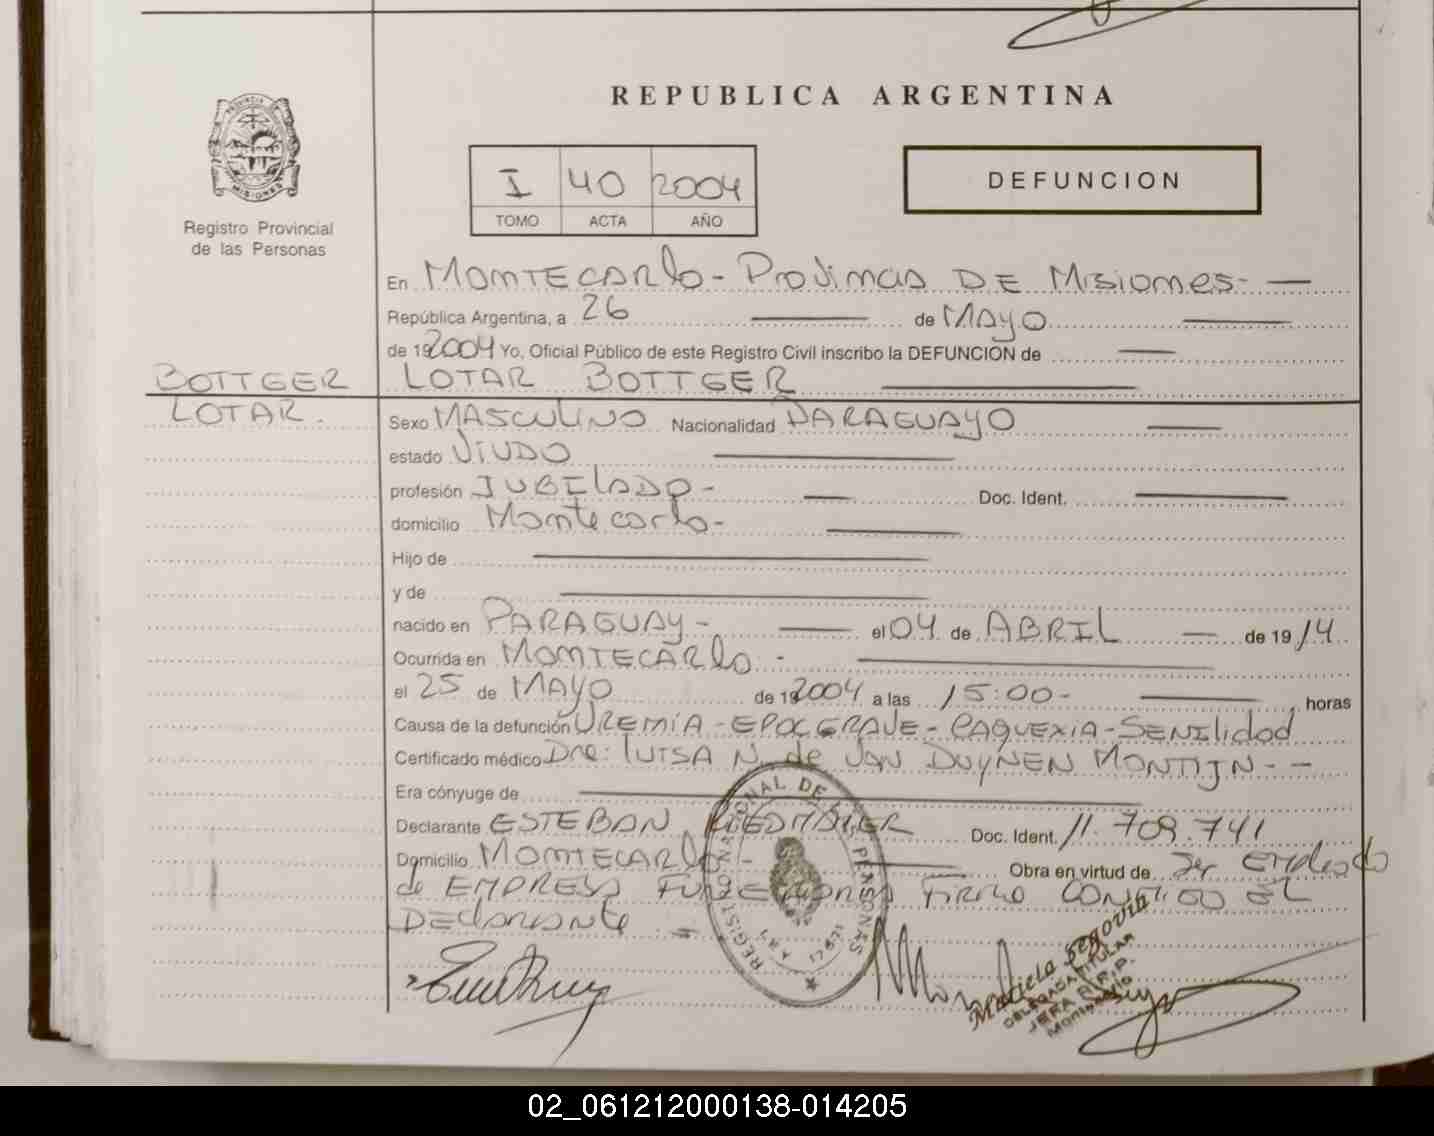 PROVINCIA
MISIONES
Registro Provincial
de las Personas
REPUBLICA ARGENTINA
I 40 2004
TOMO ACTA AÑO
DEFUNCION
En MONTECARlo - Provincia DE Misiones -
República Argentina, a 26 de MAyO
de 192004 Yo, Oficial Público de este Registro Civil inscribo la DEFUNCION de
BOTTGER LOTAR BOTTGER
LOTAR.
Sexo MASCULINO Nacionalidad PARAGUAYO
estado VIUDO
profesión JUBILADO - Doc. Ident.
domicilio Montecarlo -
Hijo de
y de
nacido en PARAGUAY - el 04 de ABRIL de 19 14
Ocurrida en MONTECARlo -
el 25 de MAYO de 192004 a las 15:00 - horas
Causa de la defunción UREMIA - EPOC GRAVE - CAQUEXIA - SENIlidad
Certificado médico Dra: LUISA N. de VAN DUYNEN MONTIJN - -
Era cónyuge de
Declarante ESTEBAN RIEDMAIER Doc. Ident. 11.709.741
Domicilio MONTECARLO - Obra en virtud de Ser Empleado
de EMPRESA FUNERARIA FIRMO CONMIGO EL
DEClarante =
REGISTRO NACIONAL DE LAS PERSONAS
LEY 17.671
Marciela Segovia
DELEGADA TITULAR
JEFA R.P.
Montecarlo
02_061212000138-014205